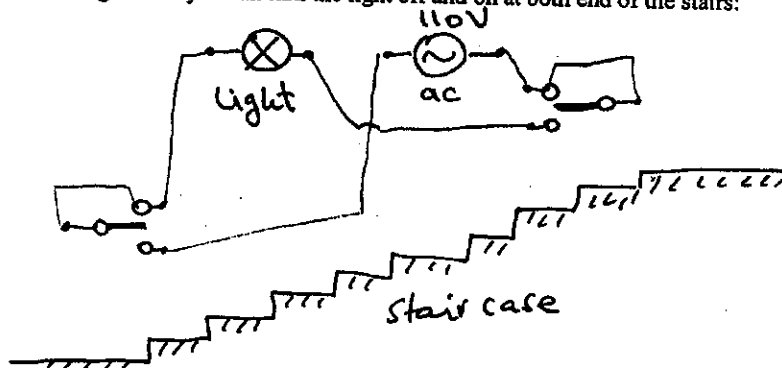 the light off and on at both end of the stairs:
110V
Light
ac
stair case